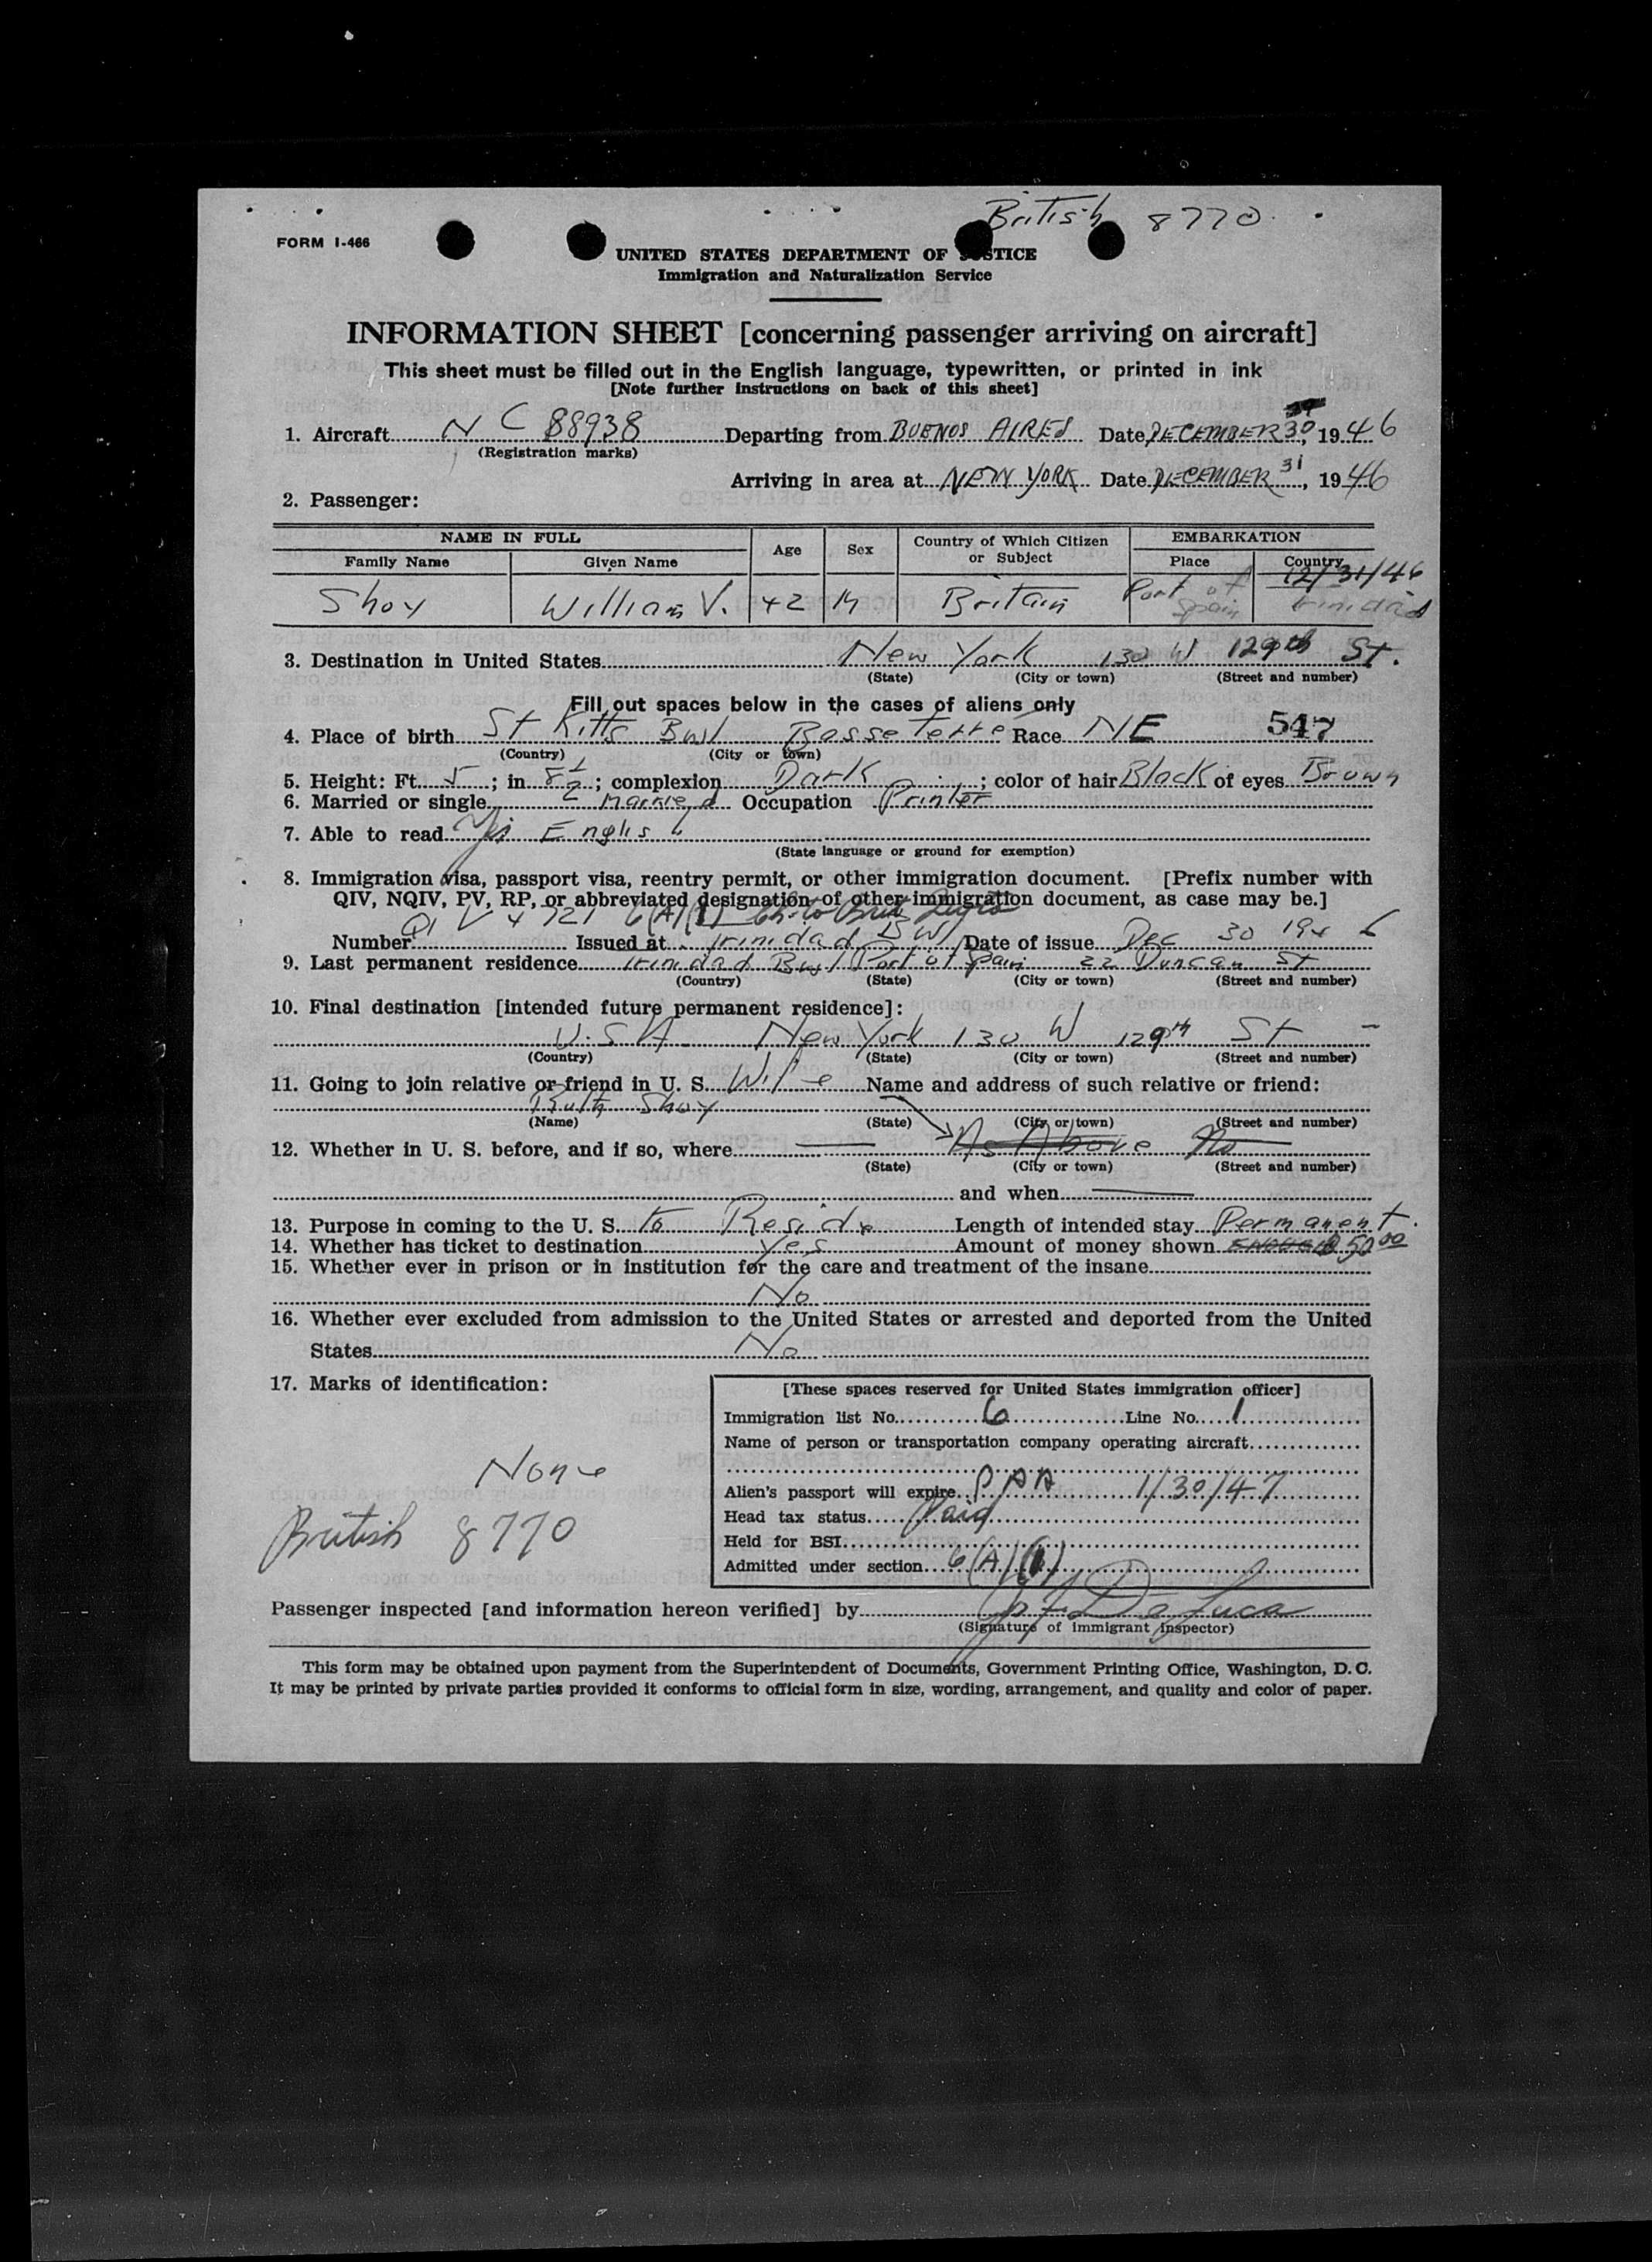 British 8770
FORM I-466
UNITED STATES DEPARTMENT OF JUSTICE
Immigration and Naturalization Service
INFORMATION SHEET [concerning passenger arriving on aircraft]
This sheet must be filled out in the English language, typewritten, or printed in ink
[Note further instructions on back of this sheet]
1. Aircraft N C 88938 Departing from BUENOS AIRES Date DECEMBER 30, 1946
(Registration marks)
Arriving in area at NEW YORK Date DECEMBER 31, 1946
2. Passenger:
NAME IN FULL Age Sex Country of Which Citizen or Subject EMBARKATION
Family Name Given Name Place Country
12/31/46
Shoy William V. 42 M Britain Port of Spain Trinidad
3. Destination in United States New York 130 W 129th St.
(State) (City or town) (Street and number)
Fill out spaces below in the cases of aliens only
4. Place of birth St Kitts BWI Basse Terre Race NE 547
(Country) (City or town)
5. Height: Ft. 5; in. 8 1/2; complexion Dark; color of hair Black of eyes Brown
6. Married or single Married Occupation Printer
7. Able to read Yes English
(State language or ground for exemption)
8. Immigration visa, passport visa, reentry permit, or other immigration document. [Prefix number with
QIV, NQIV, PV, RP, or abbreviated designation of other immigration document, as case may be.]
Number QIV 4721 6(A)(1) Issued at Trinidad BWI Date of issue Dec 30 1946
9. Last permanent residence Trinidad BWI Port of Spain 22 Duncan St
(Country) (State) (City or town) (Street and number)
10. Final destination [intended future permanent residence]:
U.S.A. New York 130 W 129th St
(Country) (State) (City or town) (Street and number)
11. Going to join relative or friend in U. S. Wife Name and address of such relative or friend:
Ruth Shoy
(Name) (State) (City or town) (Street and number)
12. Whether in U. S. before, and if so, where As Above No
(State) (City or town) (Street and number)
and when
13. Purpose in coming to the U. S. To Reside Length of intended stay Permanent.
14. Whether has ticket to destination Yes Amount of money shown ENOUGH $50.00
15. Whether ever in prison or in institution for the care and treatment of the insane
No
16. Whether ever excluded from admission to the United States or arrested and deported from the United
States No
17. Marks of identification:
None
British 8770
[These spaces reserved for United States immigration officer]
Immigration list No. 6 Line No. 1
Name of person or transportation company operating aircraft
PAA
Alien's passport will expire 1/30/47
Head tax status Paid
Held for BSI
Admitted under section 6(A)(1)
Passenger inspected [and information hereon verified] by De Luca
(Signature of immigrant inspector)
This form may be obtained upon payment from the Superintendent of Documents, Government Printing Office, Washington, D. C.
It may be printed by private parties provided it conforms to official form in size, wording, arrangement, and quality and color of paper.